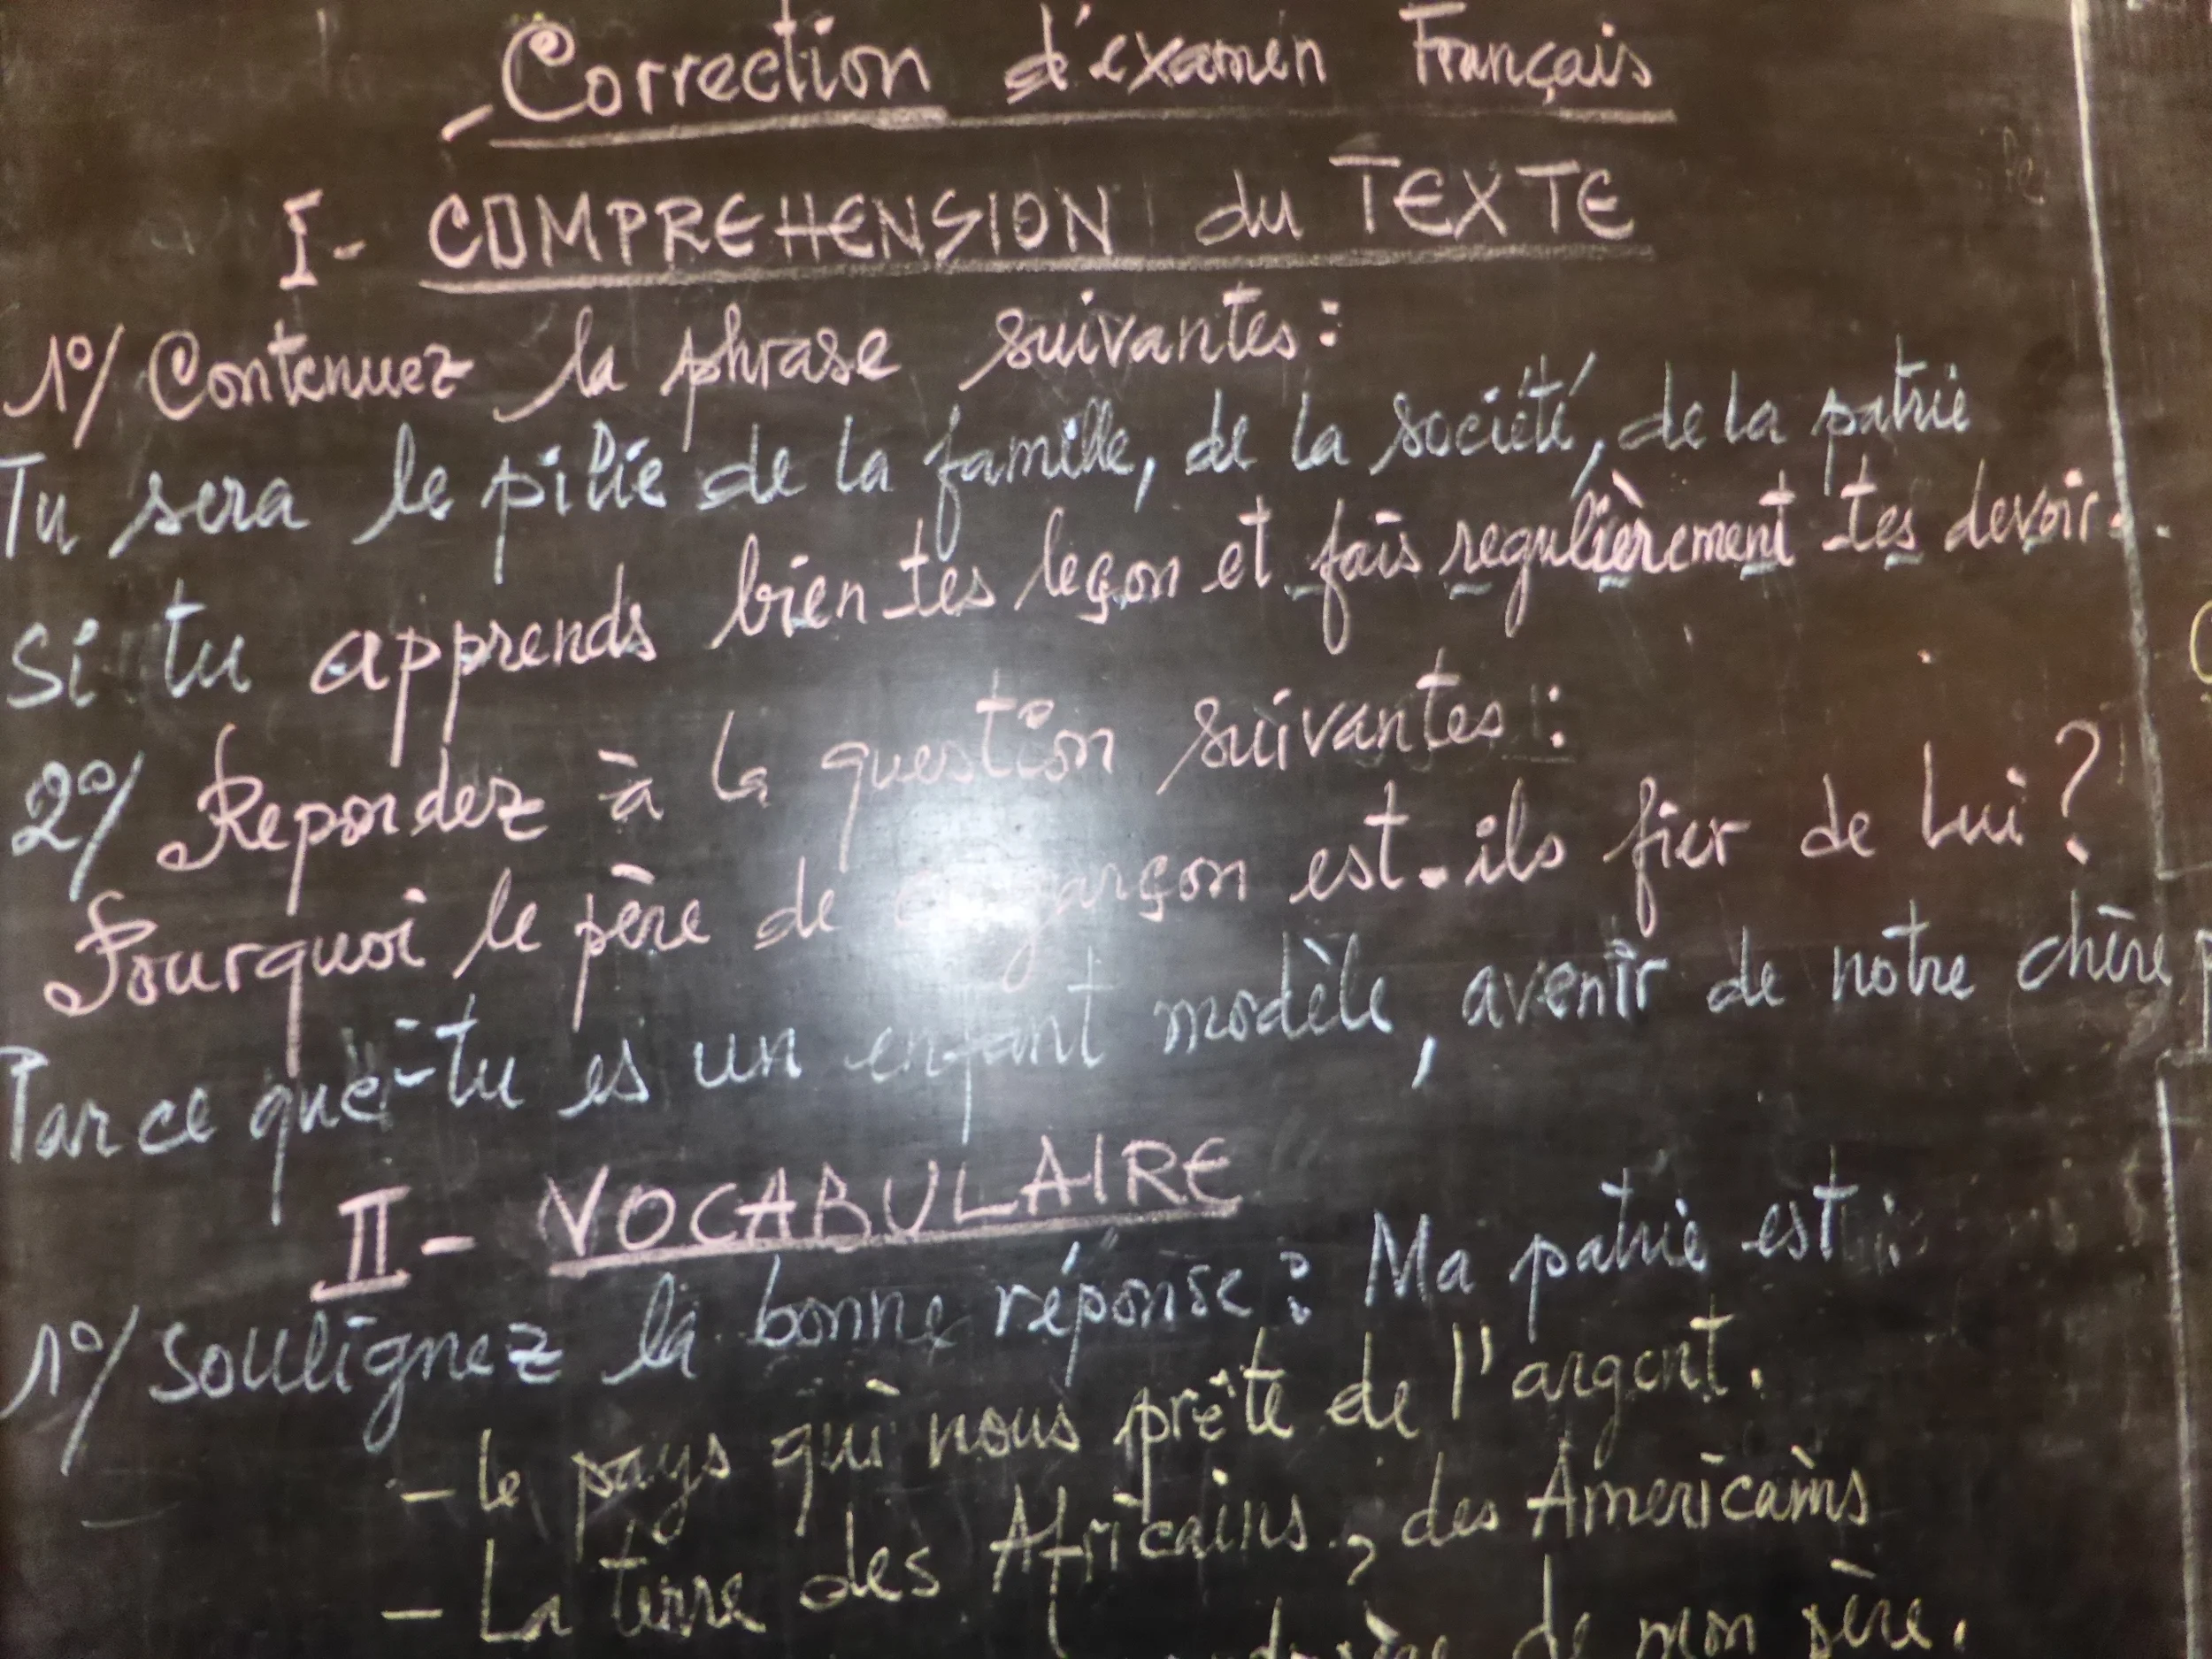 - Correction d'examen Français
I- COMPREHENSION du TEXTE
1°/ Contenuez la phrase suivantes:
Tu sera le pilié de la famille, de la société, de la patrie
Si tu apprends bien tes leçon et fais regulièrement tes devoir.
2°/ Repondez à la question suivantes:
Pourquoi le père de garçon est-ils fier de Lui?
Parce que tu es un enfant modèle, avenir de notre chère
II- VOCABULAIRE
1°/ Soulignez la bonne réponse: Ma patrie est:
- Le pays qui nous prête de l'argent.
- La terre des Africains, des Americains
de mon père.